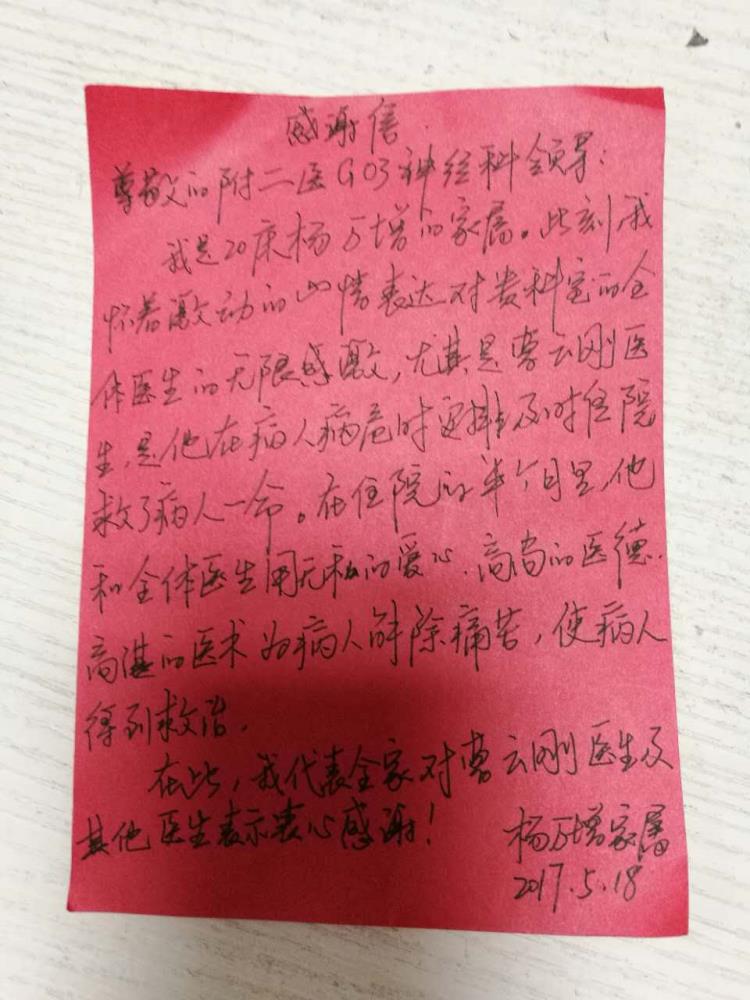 感谢信
尊敬的附二医G03神经科领导：
我是20床杨万增的家属。此刻，我
怀着激动的心情表达对贵科室的全
体医生的无限感激，尤其是曹云刚医
生，是他在病人病危时安排及时住院
救了病人一命。在住院的半个月里，他
和全体医生用无私的爱心、高尚的医德、
高湛的医术为病人解除痛苦，使病人
得到救治。
在此，我代表全家对曹云刚医生及
其他医生表示衷心感谢！
杨万增家属
2017.5.18